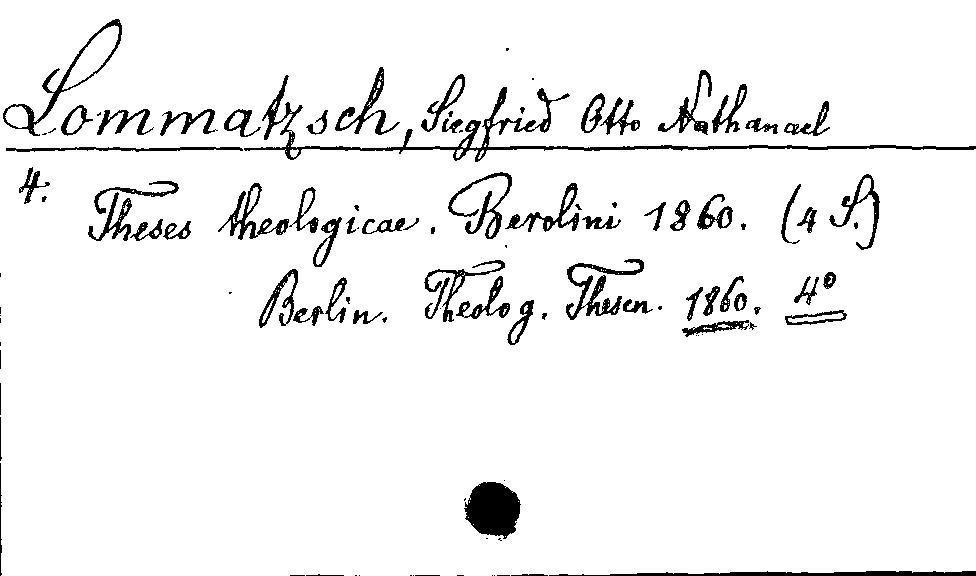 Lommatzsch, Siegfried Otto Nathanael
4.
Theses theologicae. Berolini 1860. (4 S.)
Berlin. Theolog. Thesen. 1860. 4°